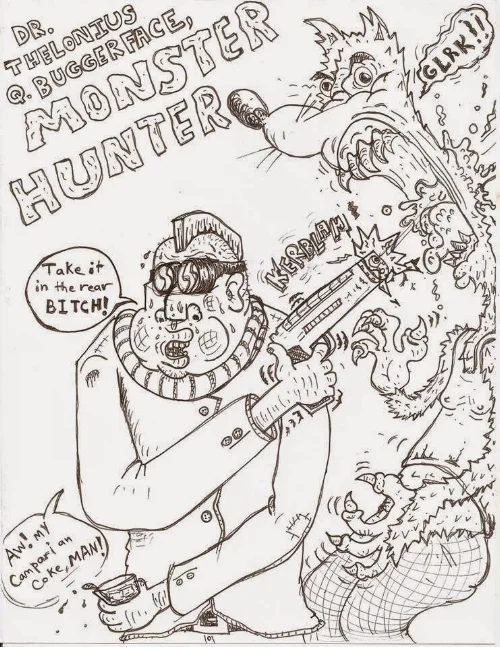 DR.
THELONIUS
Q. BUGGERFACE,
MONSTER
HUNTER
GLRK!!
KERBLAM!
Take it
in the rear
BITCH!
AW! MY
Campari an
Coke, MAN!